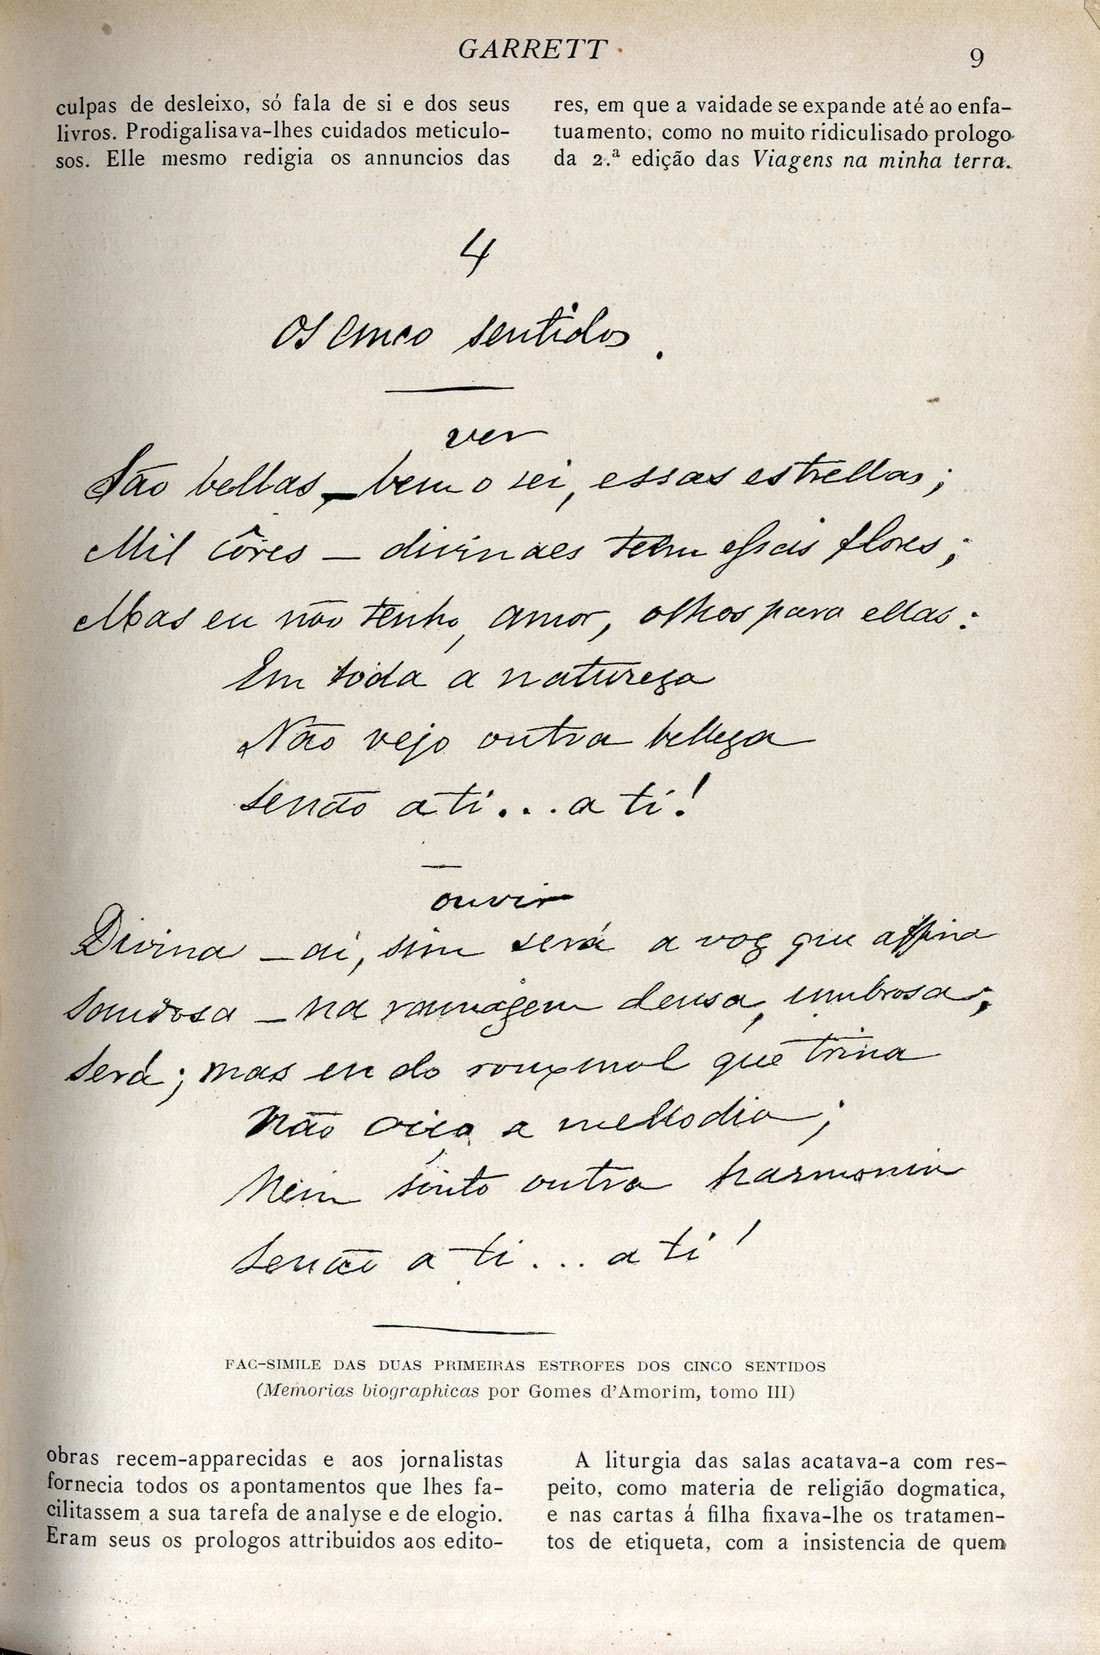 GARRETT
9
culpas de desleixo, só fala de si e dos seus
livros. Prodigalisava-lhes cuidados meticulo-
sos. Elle mesmo redigia os annuncios das
res, em que a vaidade se expande até ao enfa-
tuamento, como no muito ridiculisado prologo
da 2.ª edição das Viagens na minha terra.
4
Os cinco sentidos.
ver
São bellas – bem o sei, essas estrellas;
Mil côres – divinaes tem essas flores;
Mas eu não tenho, amor, olhos para ellas:
Em toda a natureza
Não vejo outra belleza
Senão a ti... a ti!
ouvir
Divina – ai, sim será a voz que affina
Saudosa – na ramagem densa, umbrosa;
Será; mas eu do rouxinol que trina
Não oiço a mellodia;
Nem sinto outra harmonia
Senão a ti... a ti!
FAC-SIMILE DAS DUAS PRIMEIRAS ESTROFES DOS CINCO SENTIDOS
(Memorias biographicas por Gomes d'Amorim, tomo III)
obras recem-apparecidas e aos jornalistas
fornecia todos os apontamentos que lhes fa-
cilitassem a sua tarefa de analyse e de elogio.
Eram seus os prologos attribuidos aos edito-
A liturgia das salas acatava-a com res-
peito, como materia de religião dogmatica,
e nas cartas á filha fixava-lhe os tratamen-
tos de etiqueta, com a insistencia de quem